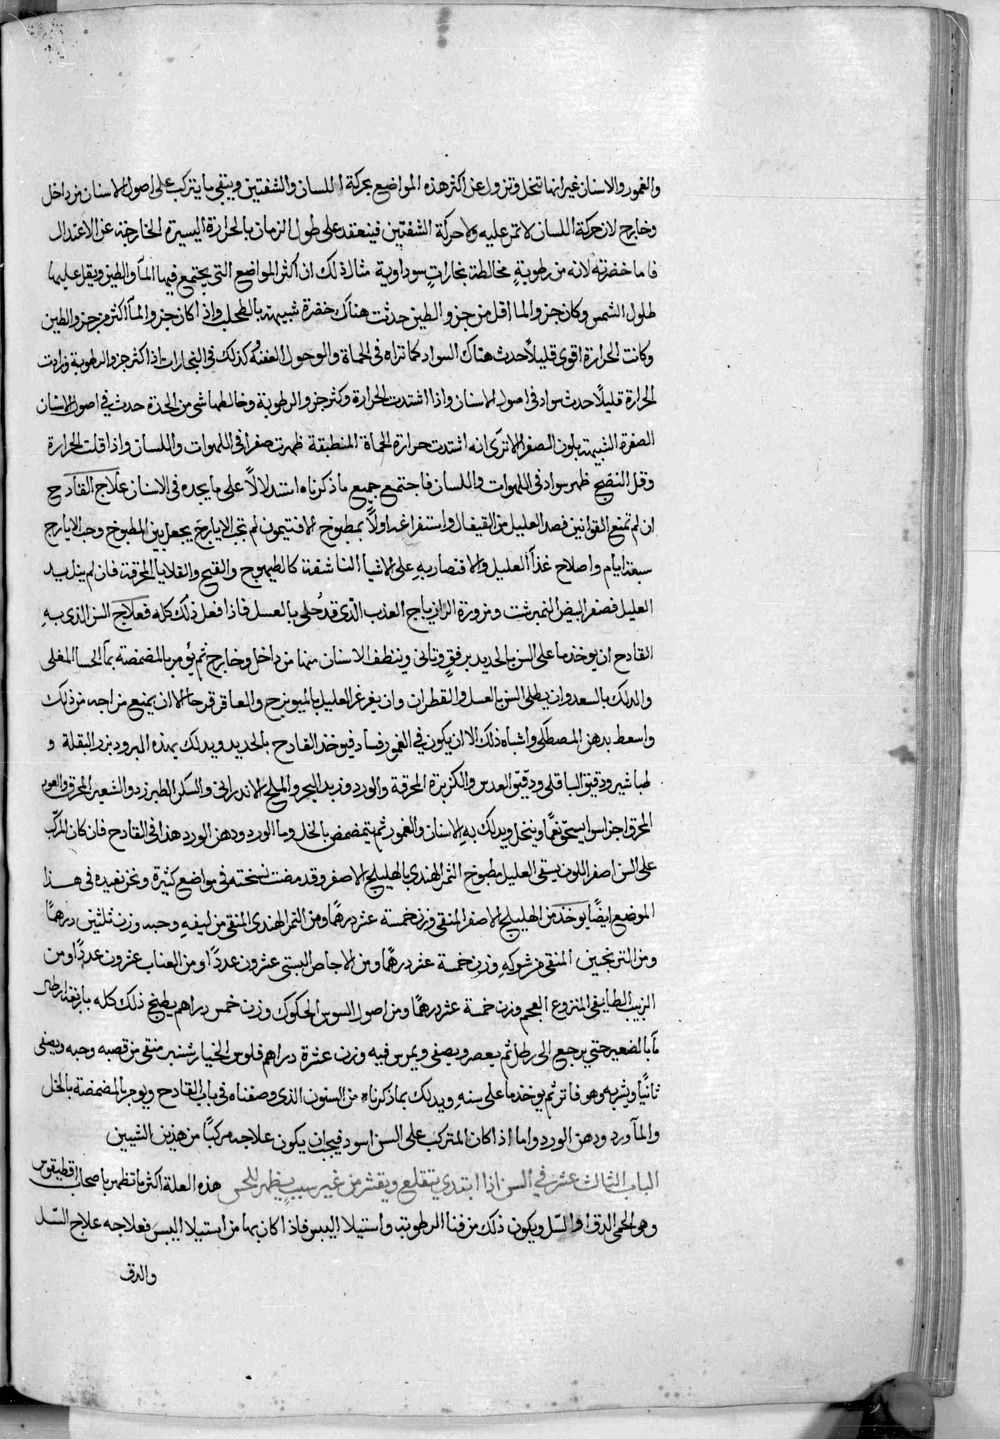 والغمور والاسنان غير انها تنحل وتزول عن اكثر هذه المواضع بحركة اللسان والشفتين ويبقى ما يتركب على اصول الاسنان من داخل
وخارج لان حركة اللسان لا تمر عليه ولا حركة الشفتين فينعقد على طول الزمان بالحرارة اليسيرة الخارجة عن الاعتدال
فاما خضرته لانه من رطوبةٍ مخالطة بخاراتٍ سوداوية مثال ذلك ان اكثر المواضع التى يجتمع فيها المآ والطين ويقل عليها
طلول الشمس وكان جزو الما اقل من جزو الطين حدثت هناك خضرة شبيهة بالطحلب واذا كان جزو المآ اكثر من جزو الطين
وكانت الحرارة اقوى قليلاً حدث هناك السواد كما تراه فى الحماة والوحول العفنة كذلك فى البخارات اذا كثر جزو الرطوبة وزادت
الحرارة قليلاً حدث سواد فى اصول الاسنان واذا اشتدت الحرارة وكثر جزو الرطوبة وخالطها شى من الحدة حدث فى اصول الاسنان
الصفرة الشبيهة بلون الصفرا الا ترى انه اشتدت حرارة الحماة المنطبقة ظهرت صفرا فى اللهوات واللسان واذا قلت الحرارة
وقل النضج ظهر سواد فى اللهوات واللسان فاجتمع جميع ما ذكرناه استدلالاً على ما يجده فى الاسنان علاج القادح
ان لم تمنع القوانين فصد العليل من القيفال واستفراغه اولاً بمطبوخ الافتيمون ثم بحب الايارج يجعل بين المطبوخ وحب الايارج
سبعة ايام واصلاح غذآ العليل والاقتصار به على الاشيا الناشفة كالطيهوج والقبج والقلايا المحرقة فان لم ينل بيد
العليل فصفر البيض النمبرشت ومزورة الزاز بياج العذب الذى قد حُلى بالعسل فاذا فعل ذلك كله فعلاج السن الذى بهِ
القادح ان يوخذ ما على السن بالحديد برفقٍ وتانى وينظف الاسنان منها من داخل وخارج ثم يؤمر بالمضمضة بمآ الحسا المغلى
والدلك بالسعد وان يطلى السن بالعسل والقطران وان يغرغر العليل بالميويزج والعاقر قرحا الا ان يمنع مزاجه من ذلك
واسعط بدهن المصطكى واشباه ذلك الا ان يكون فى الغمور فساد فيوخذ القادح بالحديد ويدلك بهذه البرود بزر البقلة و
طباشير ودقيق الباقلى ودقيق العدس والكزبرة المحرقة والورد وزبد البحر والملح الاندرانى والسكر الطبرزد والشعير المحرق والعود
المحرق اجزا سوا يسحق نعمًا وينخل ويدلك بهِ الاسنان والغمور ثم يتمضمض بالخل وما الورد ودهن الورد هذا فى القادح فان كان المركب
على السن اصفر اللون يسقى العليل مطبوخ التمر الهندى بالهليلج الاصفر وقد مضت نسخته فى مواضع كثيرة ونحن نعيده فى هذا
الموضع ايضًا يوخذ من الهليلج الاصفر المنقى وزن خمسة عشر درهمًا ومن التمر الهندى المنقى من ليفهِ وحبه وزن ثلثين درهمًا
ومن الترنجبين المنقى من شوكهِ وزن خمسة عشر درهمًا ومن الاجاص البستى عشرون عددًا ومن العناب عشرون عددًا ومن
الزبيب الطايفى المنزوع العجم وزن خمسة عشر درهمًا ومن اصول السوس المحكوك وزن خمس دراهم يطبخ ذلك كله باربعة ارطال
مآ بالصغير حتى يرجع الى رطل ثم يعصر ويصفى ويمرس فيه وزن عشرة دراهم فلوس الخيار شنبر منقى من قصبه وحبه ويصفى
ثانيًا ويشربه وهو فاتر ثم يوخذ ما على سنهِ ويدلك بما ذكرناه من السنون الذى وصفناه فى باب القادح ويوجر بالمضمضة بالخل
والمآ ورد ودهن الورد واما اذا كان المتركب على السن اسود فيجب ان يكون علاجه مركبًا من هذين الشيين
الباب الثالث عشر في السن اذا ابتدى يتقلع ويقشر من غير سبب يظهر للحس هذه العلة اكثر ما تظهر باصحاب اقطيقوس
وهو الحمى الدق او السّل ويكون ذلك من فنا الرطوبة واستيلا اليبس فاذا كان بها من استيلا اليبس فعلاجه علاج السّل
والدق